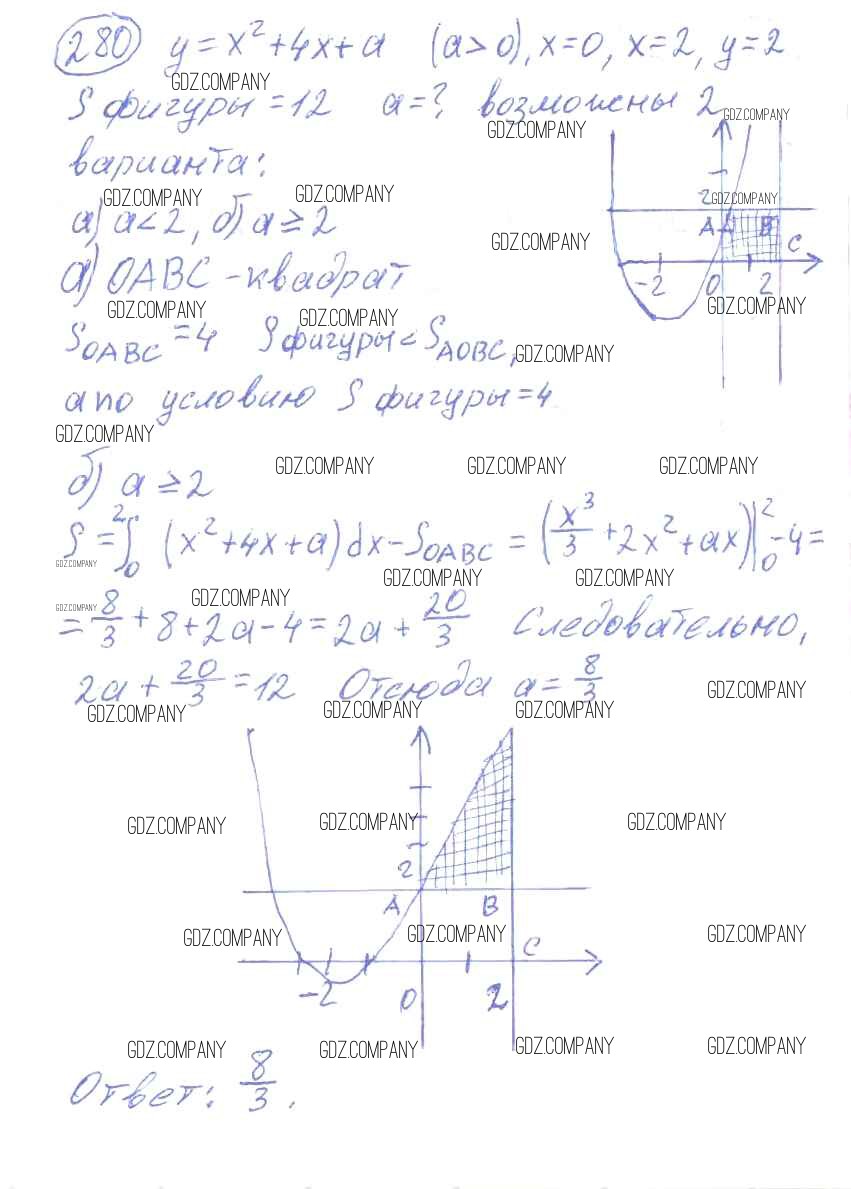 280 y = x² + 4x + a (a > 0), x = 0, x = 2, y = 2
GDZ.COMPANY
S фигуры = 12 a = ? возможны 2
GDZ.COMPANY
GDZ.COMPANY
варианта:
GDZ.COMPANY GDZ.COMPANY 2 GDZ.COMPANY
а) a < 2, б) a ≥ 2
A B C
GDZ.COMPANY
а) OABC - квадрат
-2 0 2
GDZ.COMPANY GDZ.COMPANY GDZ.COMPANY
S_OABC = 4 S фигуры < S_AOBC,
GDZ.COMPANY
а по условию S фигуры = 4
GDZ.COMPANY
GDZ.COMPANY GDZ.COMPANY GDZ.COMPANY
б) a ≥ 2
S = ∫₀² (x² + 4x + a) dx - S_OABC = (x³/3 + 2x² + ax)|₀² - 4 =
GDZ.COMPANY GDZ.COMPANY GDZ.COMPANY
GDZ.COMPANY GDZ.COMPANY
= 8/3 + 8 + 2a - 4 = 2a + 20/3 Следовательно,
2a + 20/3 = 12 Отсюда a = 8/3
GDZ.COMPANY
GDZ.COMPANY GDZ.COMPANY GDZ.COMPANY
GDZ.COMPANY GDZ.COMPANY GDZ.COMPANY
2
A B
GDZ.COMPANY GDZ.COMPANY GDZ.COMPANY
C
-2 0 2
GDZ.COMPANY GDZ.COMPANY GDZ.COMPANY GDZ.COMPANY
Ответ: 8/3.